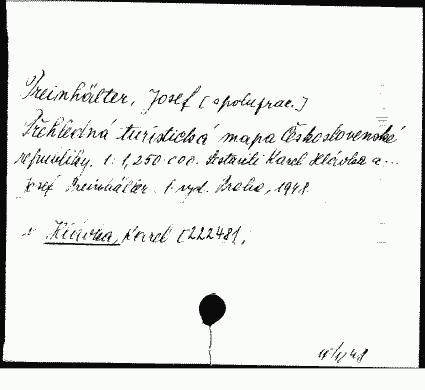 Preinhälter, Josef [spoluprac.]
Přehledná turistická mapa Československé
republiky. 1:1,250.000. Sestavili Karel Hlávka a...
Josef Preinhälter. 1. vyd. Praha, 1948
v Hlávka, Karel [22248],